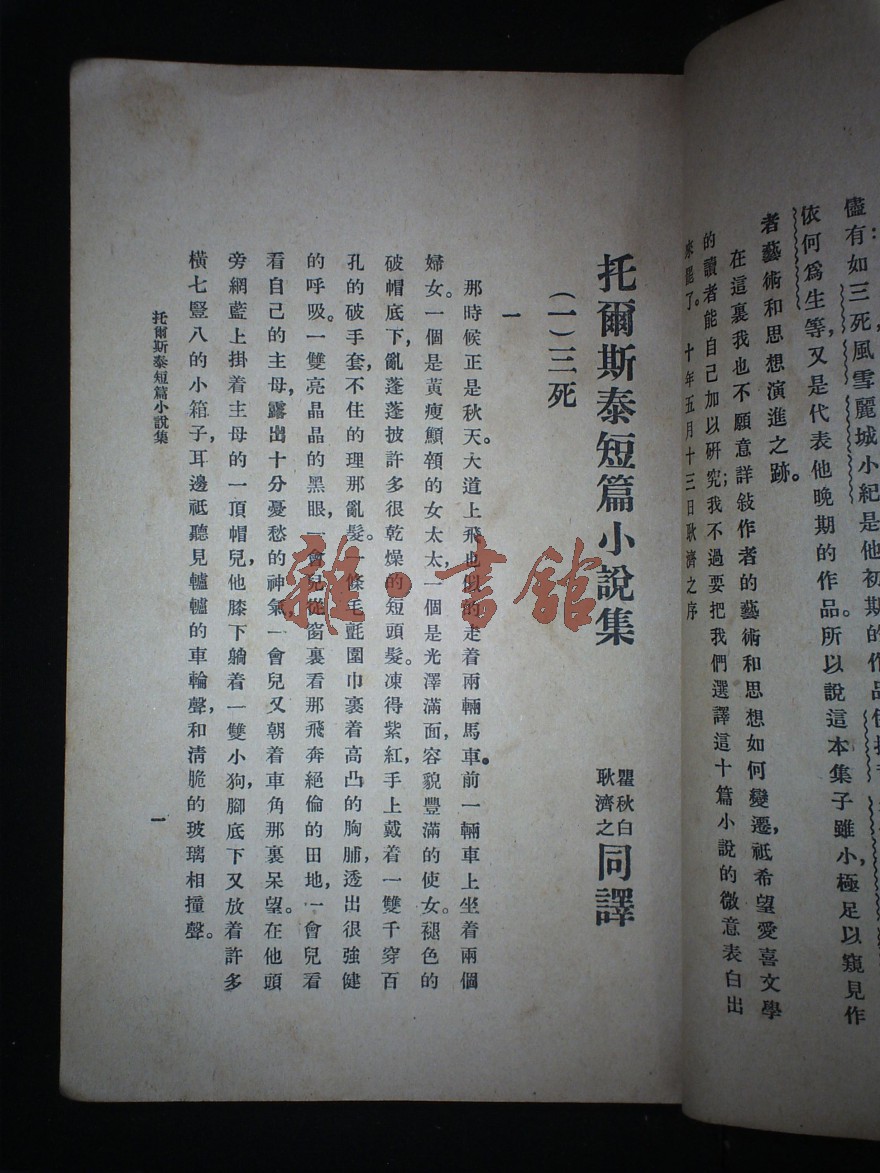 儘有如三死風雪麗城小紀是他初期的作品
依何爲生等,又是代表他晚期的作品。所以說這本集子雖小,極足以窺見作
者藝術和思想演進之跡。
在這裏我也不願意詳敍作者的藝術和思想如何變遷,祇希望愛喜文學
的讀者能自己加以研究;我不過要把我們選譯這十篇小說的微意表白出
來罷了。 十年五月十三日耿濟之序
托爾斯泰短篇小說集
瞿秋白
耿濟之
同譯
(一)三死
一
那時候正是秋天。大道上飛也似的走着兩輛馬車。前一輛車上坐着兩個
婦女。一個是黃瘦顦顇的女太太,一個是光澤滿面,容貌豐滿的使女。褪色的
破帽底下,亂蓬蓬披許多很乾燥的短頭髮。凍得紫紅,手上戴着一雙千穿百
孔的破手套,不住的理那亂髮。一條毛氈圍巾裹着高凸的胸脯,透出很強健
的呼吸。一雙亮晶晶的黑眼,一會兒從窗裏看那飛奔絕倫的田地,一會兒看
看自己的主母,露出十分憂愁的神氣,一會兒又朝着車角那裏呆望。在他頭
旁網籃上掛着主母的一頂帽兒,他膝下躺着一雙小狗,腳底下又放着許多
橫七豎八的小箱子,耳邊祇聽見轤轤的車輪聲,和清脆的玻璃相撞聲。
托爾斯泰短篇小說集
一
雜·書館